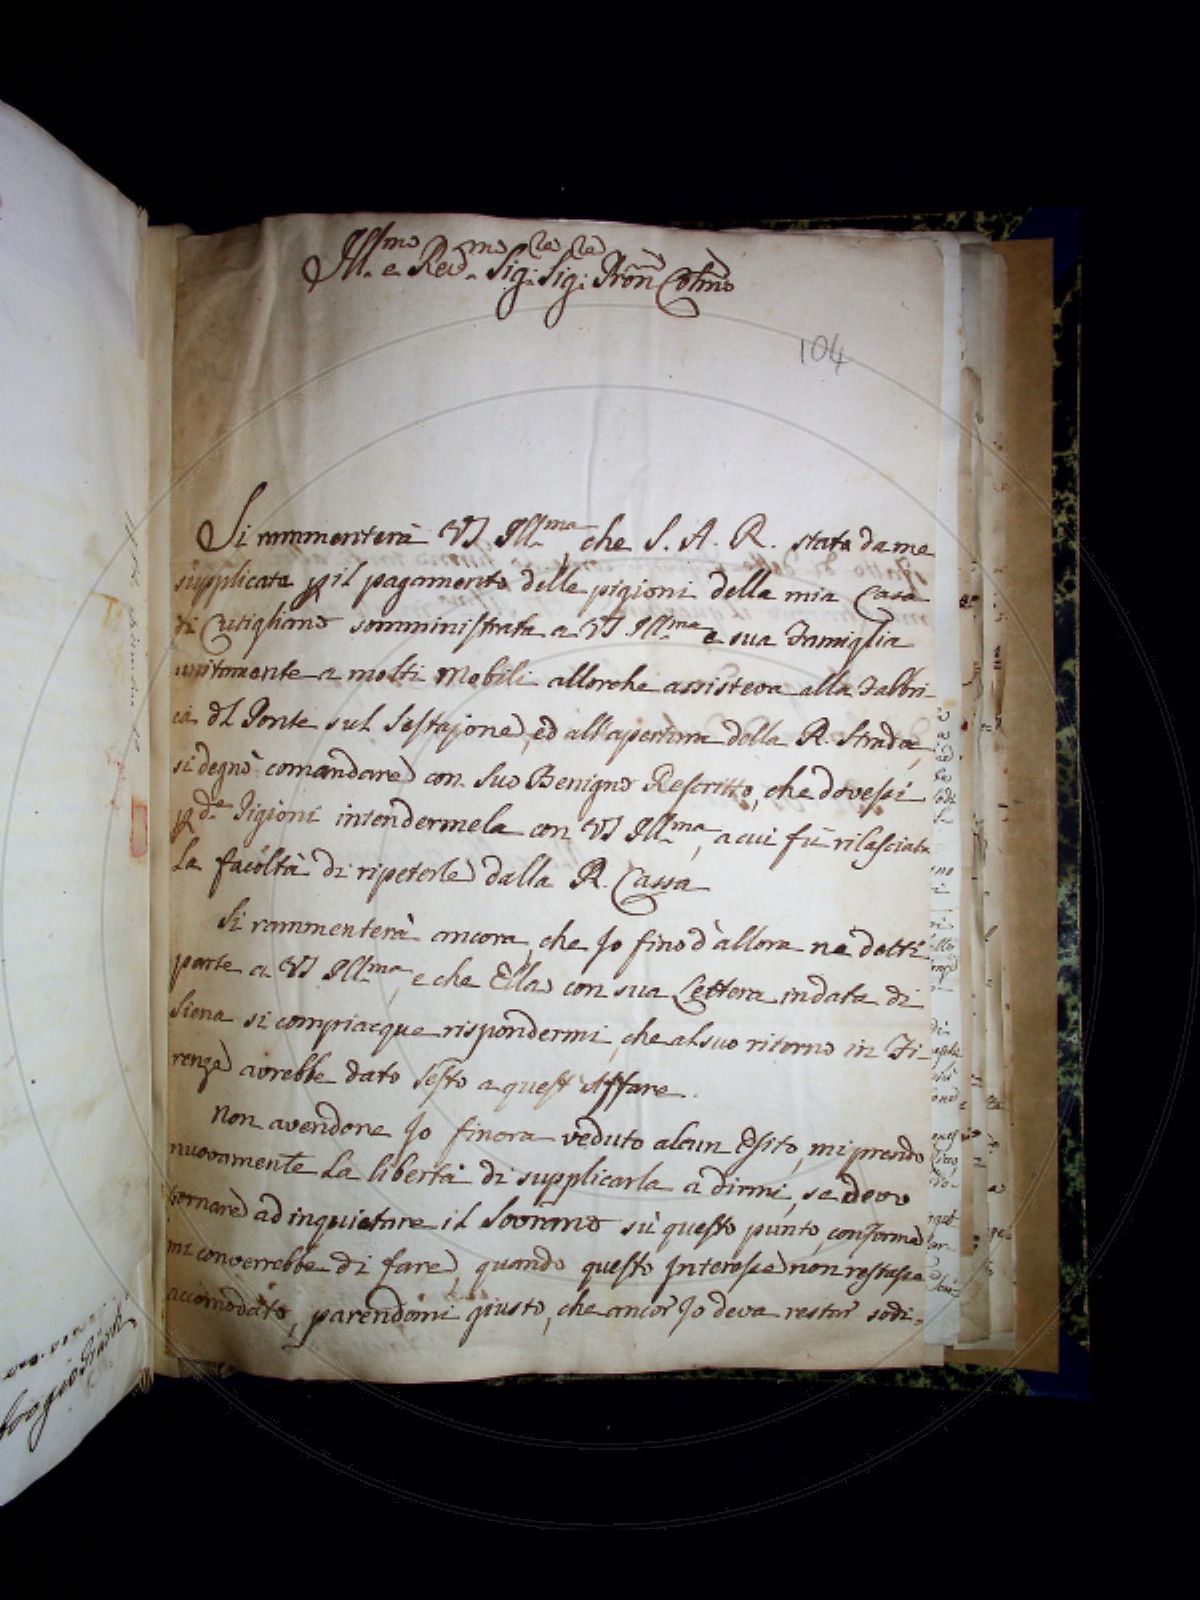 Ill.mo e Rev.mo Sig.re Sig.re Pron Colmo
104
Si rammenterà VS Ill.ma, che S. A. R. stata da me
supplicata p il pagamento delle pigioni della mia Casa
di Cutigliano somministrata a VS Ill.ma e sua Famiglia
unitamente a molti Mobili allorche assisteva alla Fabbri-
ca del Ponte sul Sestajone, ed all'apertura della R. Strada,
si degnò comandare con suo Benigno Rescritto, che dovessi
p d.e Pigioni intendermela con VS Ill.ma, a cui fù rilasciata
la facoltà di ripeterle dalla R. Cassa
Si rammenterà ancora, che Jo fino d'allora ne detti
parte a VS Ill.ma, e che Ella con sua Lettera in data di
Siena si compiacque rispondermi, che al suo ritorno in Fi-
renze avrebbe dato sesto a quest'Affare.
Non avendone Jo finora veduto alcun Esito, mi prendo
nuovamente la libertà di supplicarla a dirmi, se devo
tornare ad inquietare il Sovrano sù questo punto, conforme
mi converrebbe di fare, quando questo Interesse non restasse
accomodato, parendomi giusto, che ancor Jo deva restar sodi-